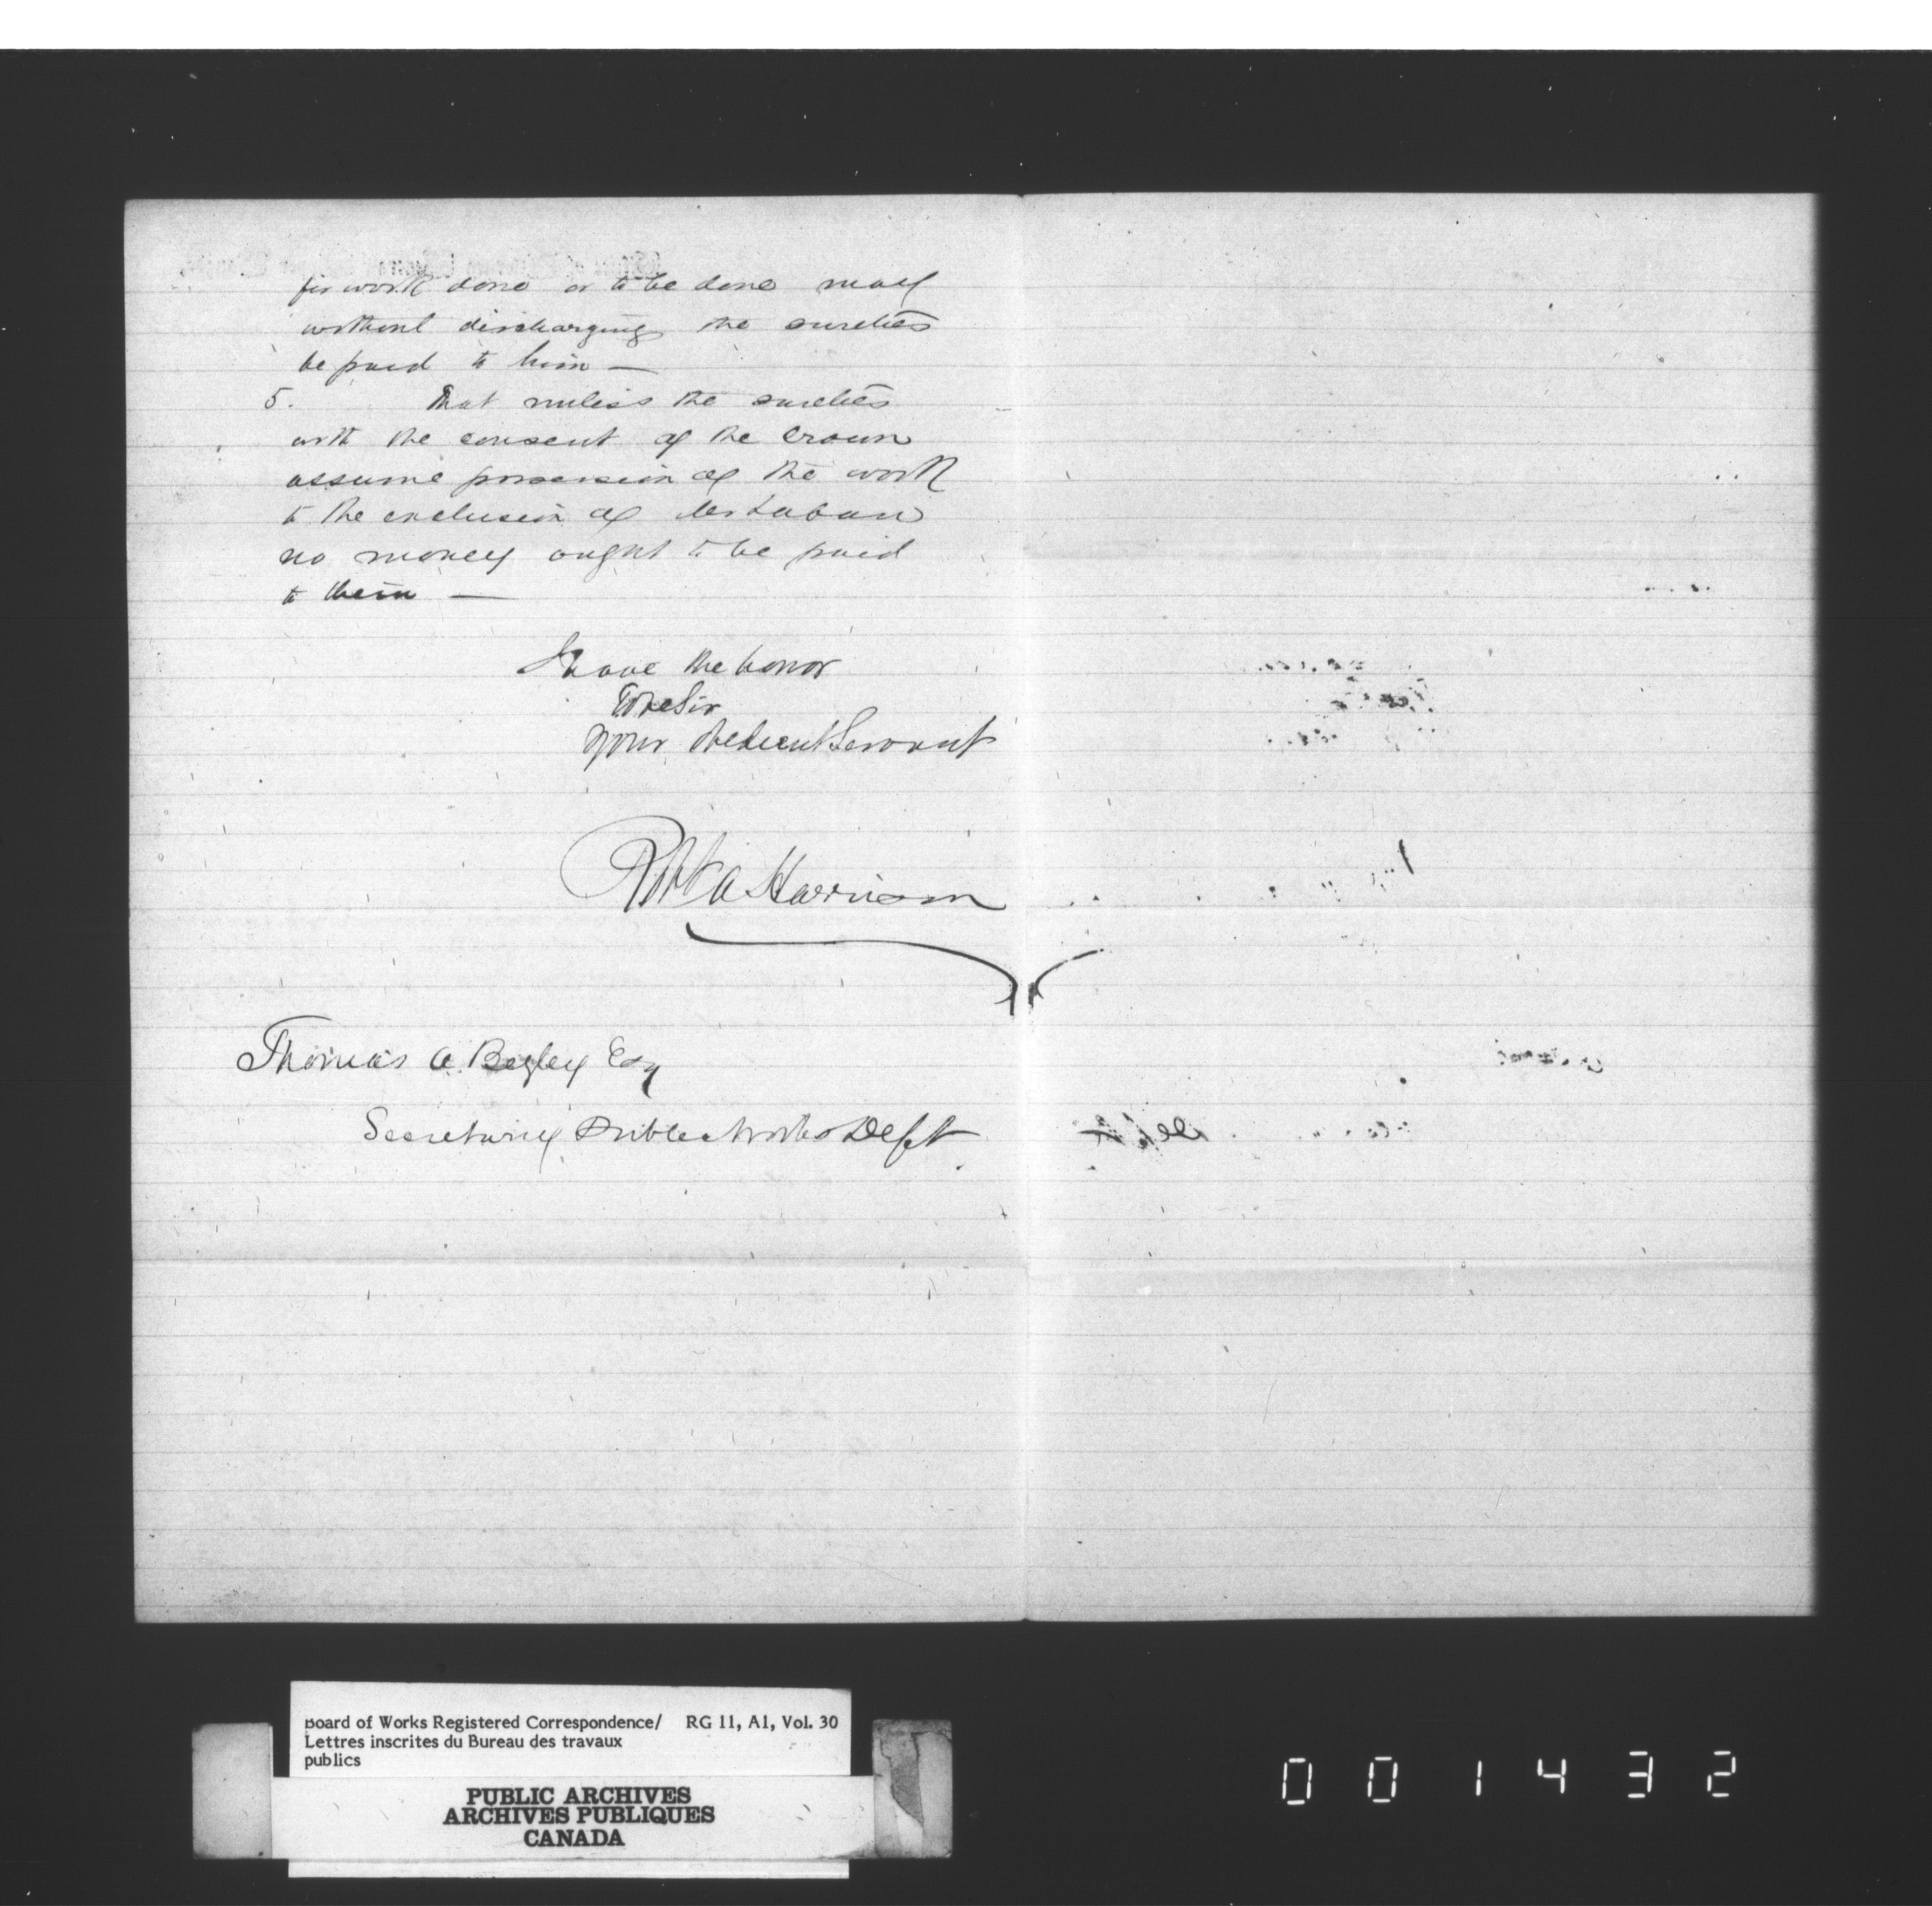 for work done or to be done may
without discharging the sureties
be paid to him —
5. That unless the sureties
with the consent of the Crown
assume possession of the work
to the exclusion of Mr Laban
no money ought to be paid
to them —
I have the honor
To be Sir
your obedient Servant
Robt A Harrison
Thomas A Begley Esq
Secretary Public Works Dept
Board of Works Registered Correspondence/ RG 11, A1, Vol. 30
Lettres inscrites du Bureau des travaux
publics
PUBLIC ARCHIVES
ARCHIVES PUBLIQUES
CANADA
001432